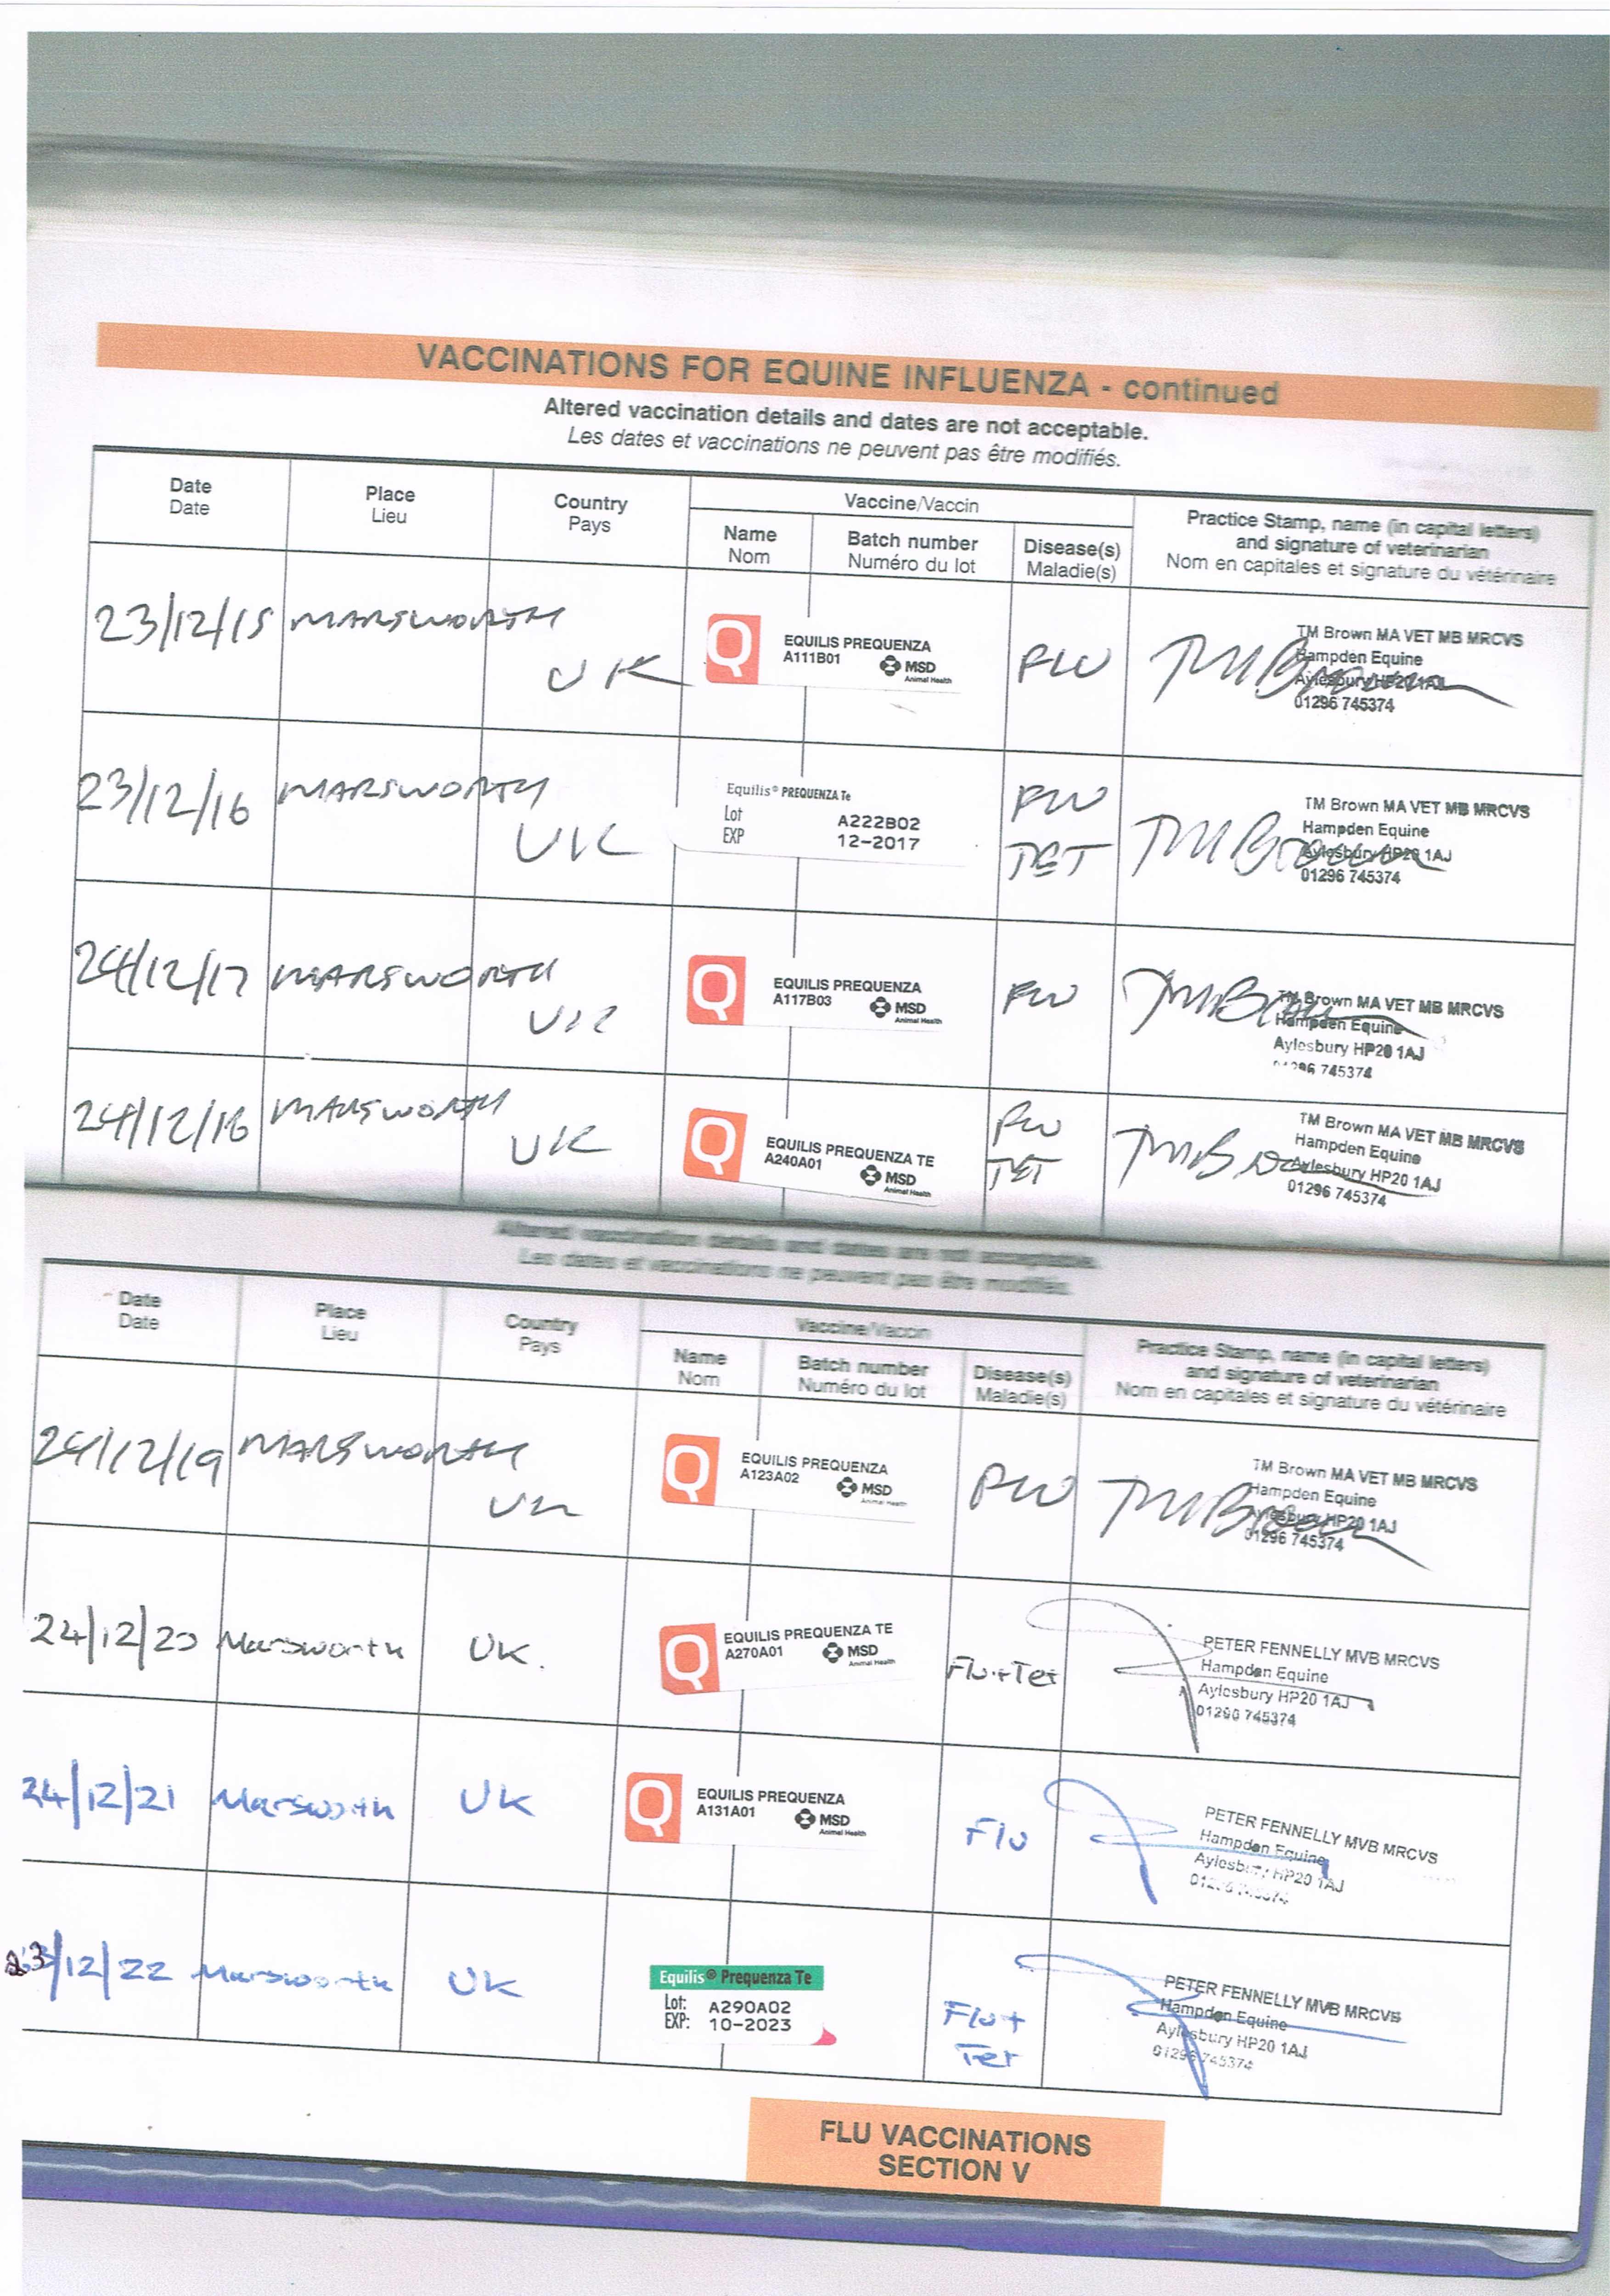 VACCINATIONS FOR EQUINE INFLUENZA - continued
Altered vaccination details and dates are not acceptable.
Les dates et vaccinations ne peuvent pas être modifiés.
Date
Date
Place
Lieu
Country
Pays
Vaccine/Vaccin
Name
Nom
Batch number
Numéro du lot
Disease(s)
Maladie(s)
Practice Stamp, name (in capital letters)
and signature of veterinarian
Nom en capitales et signature du vétérinaire
23/12/15
MARSWORTH
UK
Q
EQUILIS PREQUENZA
A111B01
MSD
Animal Health
FLU
TM Brown
TM Brown MA VET MB MRCVS
Hampden Equine
Aylesbury HP20 1AJ
01296 745374
23/12/16
MARSWORTH
UK
Equilis® PREQUENZA Te
Lot A222B02
EXP 12-2017
FLU
TET
TM Brown
TM Brown MA VET MB MRCVS
Hampden Equine
Aylesbury HP20 1AJ
01296 745374
24/12/17
MARSWORTH
UK
Q
EQUILIS PREQUENZA
A117B03
MSD
Animal Health
FLU
TM Brown
TM Brown MA VET MB MRCVS
Hampden Equine
Aylesbury HP20 1AJ
01296 745374
MARSWORTH
UK
Q
EQUILIS PREQUENZA TE
A240A01
MSD
Animal Health
FLU
TET
TM Brown
TM Brown MA VET MB MRCVS
Hampden Equine
Aylesbury HP20 1AJ
01296 745374
Altered vaccination details and dates are not acceptable.
Les dates et vaccinations ne peuvent pas être modifiés.
Date
Date
Place
Lieu
Country
Pays
Vaccine/Vaccin
Name
Nom
Batch number
Numéro du lot
Disease(s)
Maladie(s)
Practice Stamp, name (in capital letters)
and signature of veterinarian
Nom en capitales et signature du vétérinaire
24/12/19
MARSWORTH
UK
Q
EQUILIS PREQUENZA
A123A02
MSD
Animal Health
FLU
TM Brown
TM Brown MA VET MB MRCVS
Hampden Equine
Aylesbury HP20 1AJ
01296 745374
24/12/20
Marsworth
UK.
Q
EQUILIS PREQUENZA TE
A270A01
MSD
Animal Health
Flu+Tet
PETER FENNELLY MVB MRCVS
Hampden Equine
Aylesbury HP20 1AJ
01296 745374
24/12/21
Marsworth
UK
Q
EQUILIS PREQUENZA
A131A01
MSD
Animal Health
Flu
PETER FENNELLY MVB MRCVS
Hampden Equine
Aylesbury HP20 1AJ
23/12/22
Marsworth
UK
Equilis® Prequenza Te
Lot: A290A02
EXP: 10-2023
Flu+
Tet
PETER FENNELLY MVB MRCVS
Hampden Equine
Aylesbury HP20 1AJ
01296 745374
FLU VACCINATIONS
SECTION V